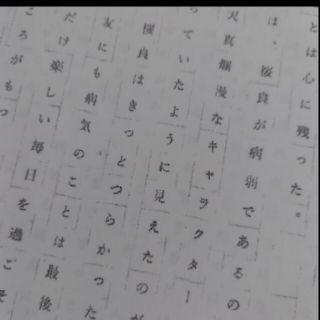 とは心に残った。
は、桜良が病弱であるの
天真爛漫なキャラクター
っていたように見えたの
桜良はきっとつらかった
友にも病気のことは最後
だけ楽しい毎日を過ご
ろがもっ